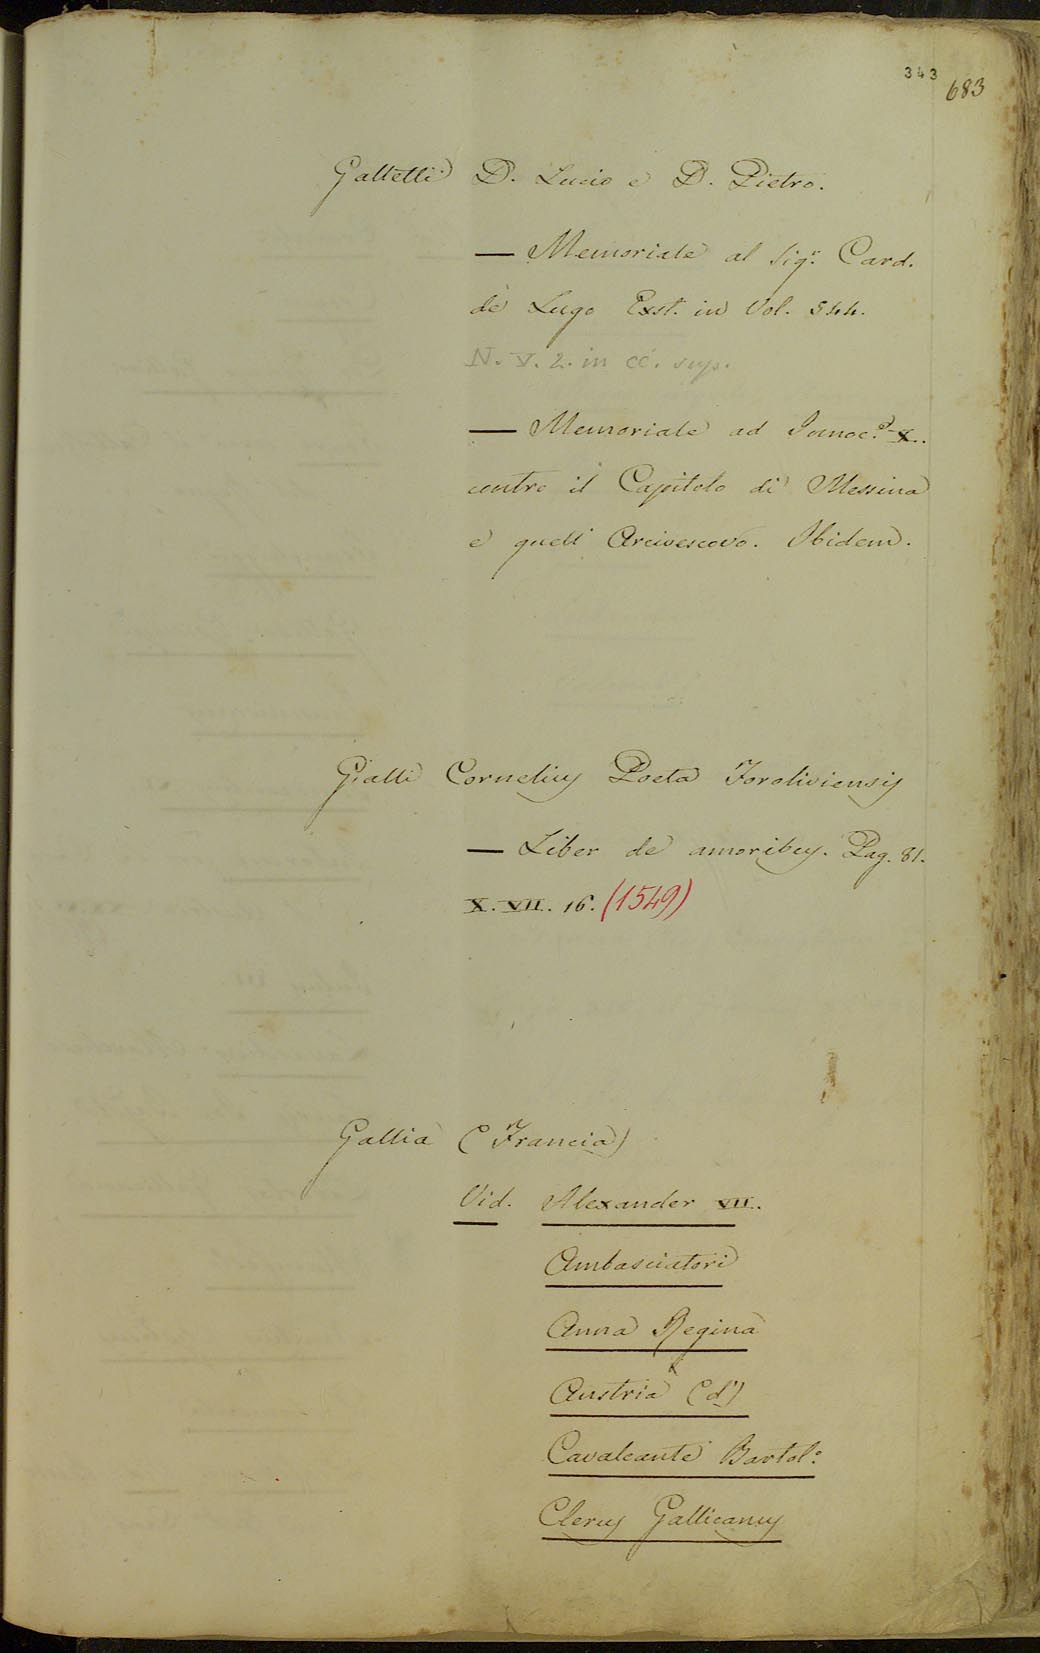 343
683
Galletti D. Lucio e D. Pietro.
— Memoriale al Sigr. Card.
de Lugo Exst. in Vol. 544.
N. V. 2. in cc. sup.
— Memoriale ad Innoc.o X.
contro il Capitolo di Messina
e quell Arcivescovo. Ibidem.
Galli Cornelius Poeta Foroliviensis
— Liber de amoribus. Pag. 81.
X. VII. 16. (1549)
Gallia (Francia)
Vid. Alexander VII.
Ambasciatori
Anna Regina
Austria (d')
Cavalcante Bartol.o
Clerus Gallicanus